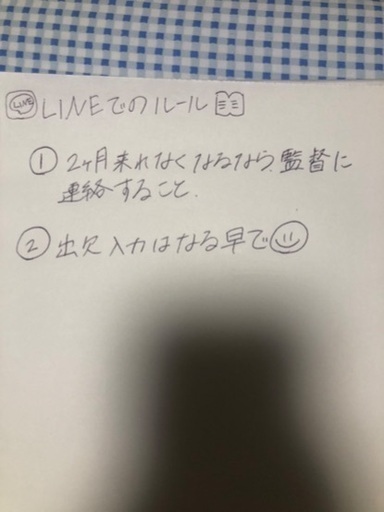 LINE LINEでのルール
① 2ヶ月来れなくなるなら、監督に
連絡すること.
② 出欠入力はなる早で